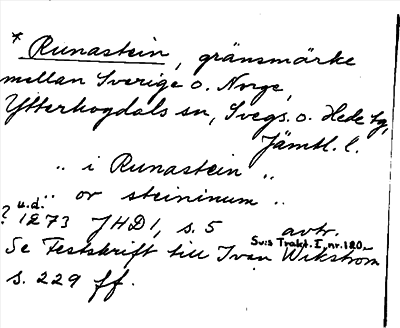 * Runastein, gränsmärke
mellan Sverige o. Norge,
Ytterhogdals sn, Svegs. o. Hede tg,
Jämtl. l.
" i Runastein "
" or steininum "
? u.d. 1273 JHD 1, s. 5 avtr.
Sv:s Trakt. I, nr. 120.
Se Festskrift till Ivan Wikström
s. 229 ff.